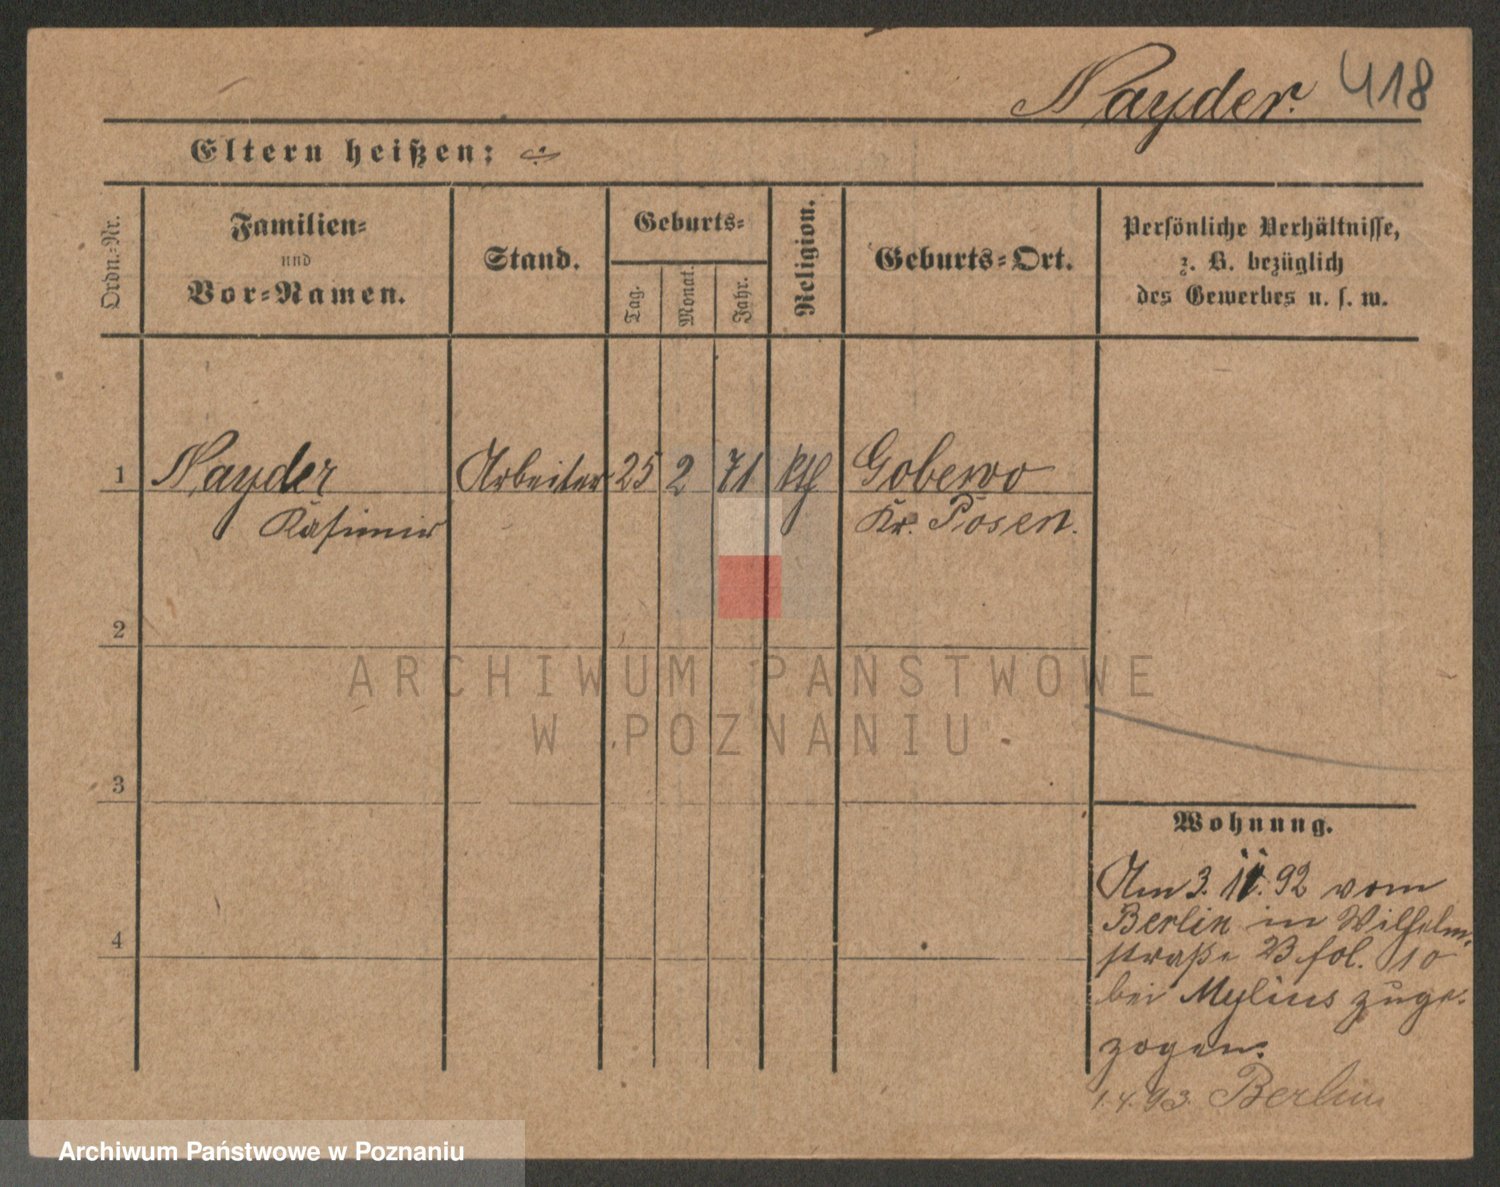 Nayder. 418
Eltern heißen:
Ordn.=Nr.
Familien=
und
Vor=Namen.
Stand.
Geburts=
Tag.
Monat.
Jahr.
Religion.
Geburts=Ort.
Persönliche Verhältnisse,
z. B. bezüglich
des Gewerbes u. s. w.
1 Nayder Arbeiter 25 2 71 kth Gobewo
Kasimir Kr. Posen.
2
ARCHIWUM PAŃSTWOWE
W POZNANIU
3
Wohnung.
Am 3. 11. 92 vom
Berlin in Wilhelm-
4
straße fol. 10
bei Mylius zuge-
zogen.
1.4.93. Berlin
Archiwum Państwowe w Poznaniu